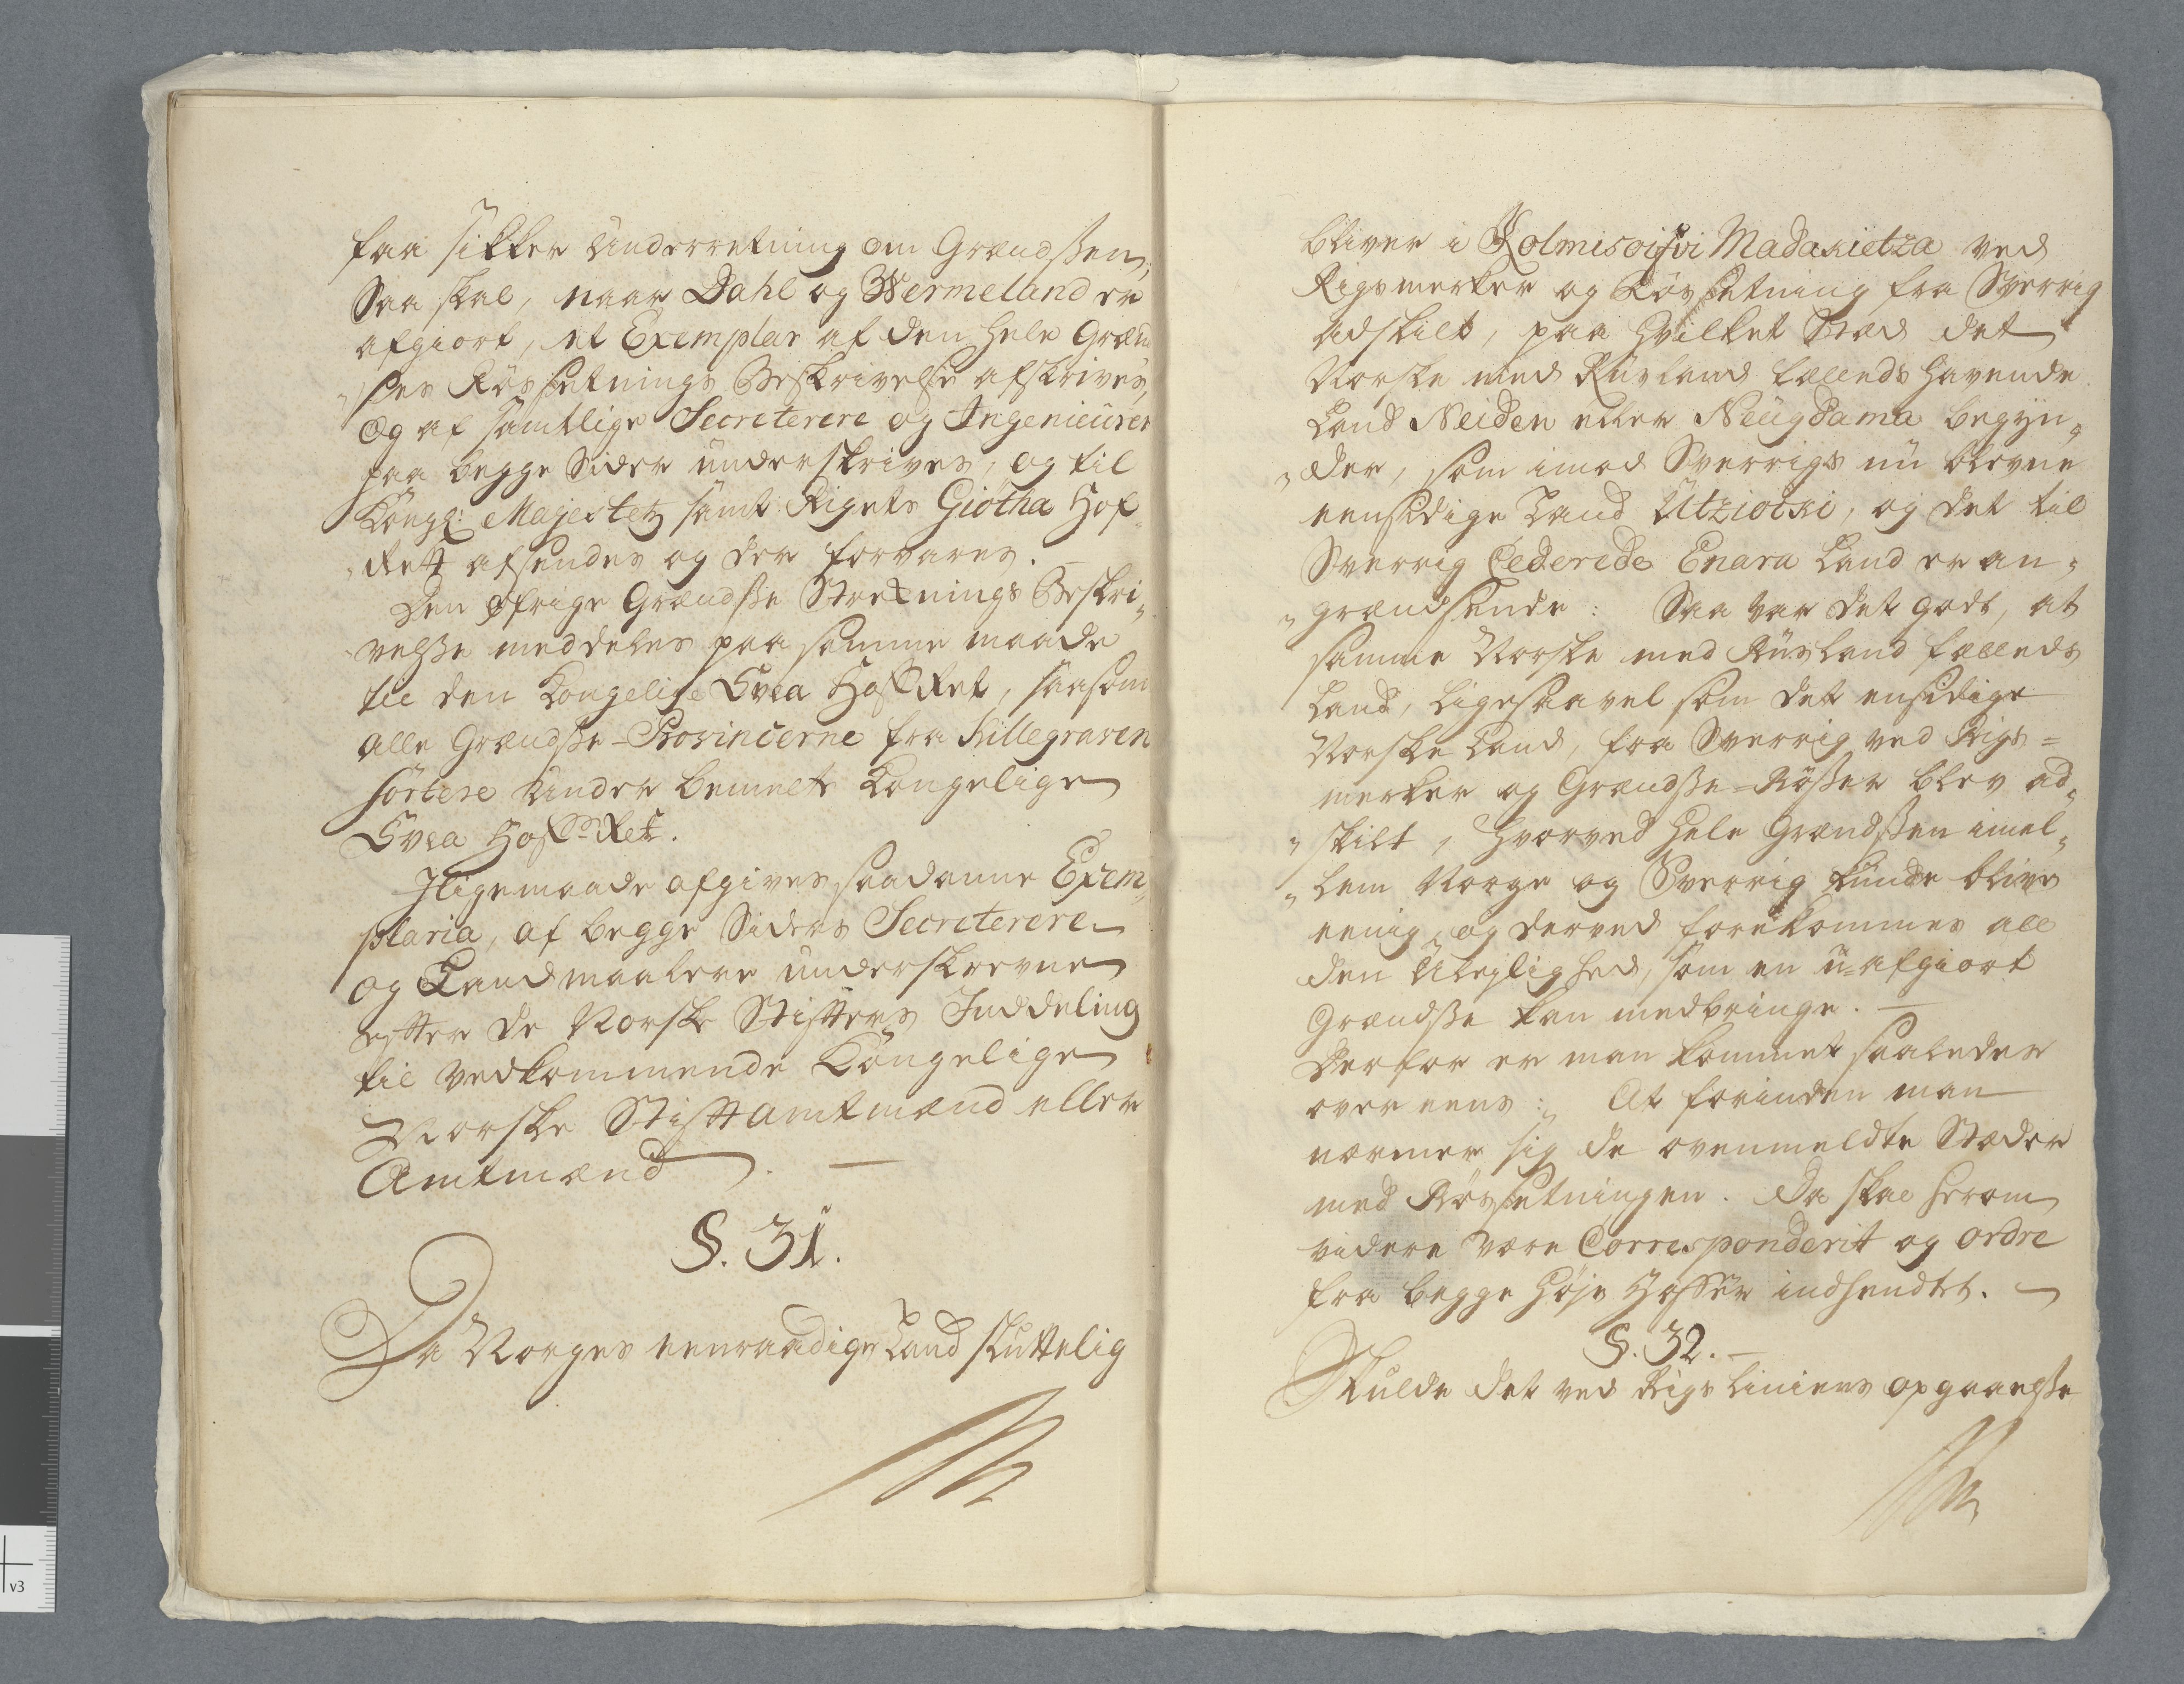 faa sikker Underretning om Grændssen,
Saa skal, naar Dahl og Wermeland er
afgiort, et Exemplar af den hele Grænd
„ses Røssetnings Beskrivelse afskrives,
Og af samtlige Secreterere og Ingenieurer
paa begge Sider underskrives, og til
Kongl: Majestetz samt Rigets Giötha Hof„
„Rett afsendes og der forvares.
Den øfrige Grændsse Streknings Beskri„
„velsse meddeles paa samme maade
til den Kongelige Svea Hoff Ret, saasom
alle Grændsse-Provincerne fra Killegraven
sortere Under bemelte Kongelige
Svea Hoff Ret.
Jligemaade afgives saadanne Exem„
plaria, af begge Siders Secreterere
og Landmaalere underskrevne
effter de Norske Stiffters Inddeling
til vedkommende Kongelige
Norske Stifftamtmænd eller
Amtmænd. —
§. 31.
Da Norges eenraadige Land sluttelig
bliver i Kolmisoivi Madakietza ved
Rigsmerker og Røssetning fra Sverrig
adskilt, paa hvilket Stæd det
Norske med Rusland fælleds havende
Land Neiden eller Neugdama begyn„
„der, som imod Sverrigs nu blevne
eensidige Land Utziocki, og det til
Sverrig Cederede Enara Land er an„
„grændsende: Saa var det godt, at
samme Norske med Rusland fælleds
Land, ligesaavel som det ensidige
Norske Land, fra Sverrig ved Rigs=
merker og Grændsse=Røsser blev ad„
„skilt, hvorved hele Grændssen imel„
„lem Norge og Sverrig kunde blive
eenig, og derved forekommes all
den Uleylighed, som en u=afgiort
Grændsse kan medbringe. —
Derfor er man kommet saaledes
over eens: At forinden man
nærmer sig de ovenmeldte Stæder
med Røssetningen. Da skal herom
videre være Corresponderit og ordre
fra begge Høje Hoffer indhendtet. —
§. 32. —
Skulde det ved Rigs Liniens opgaaelsse